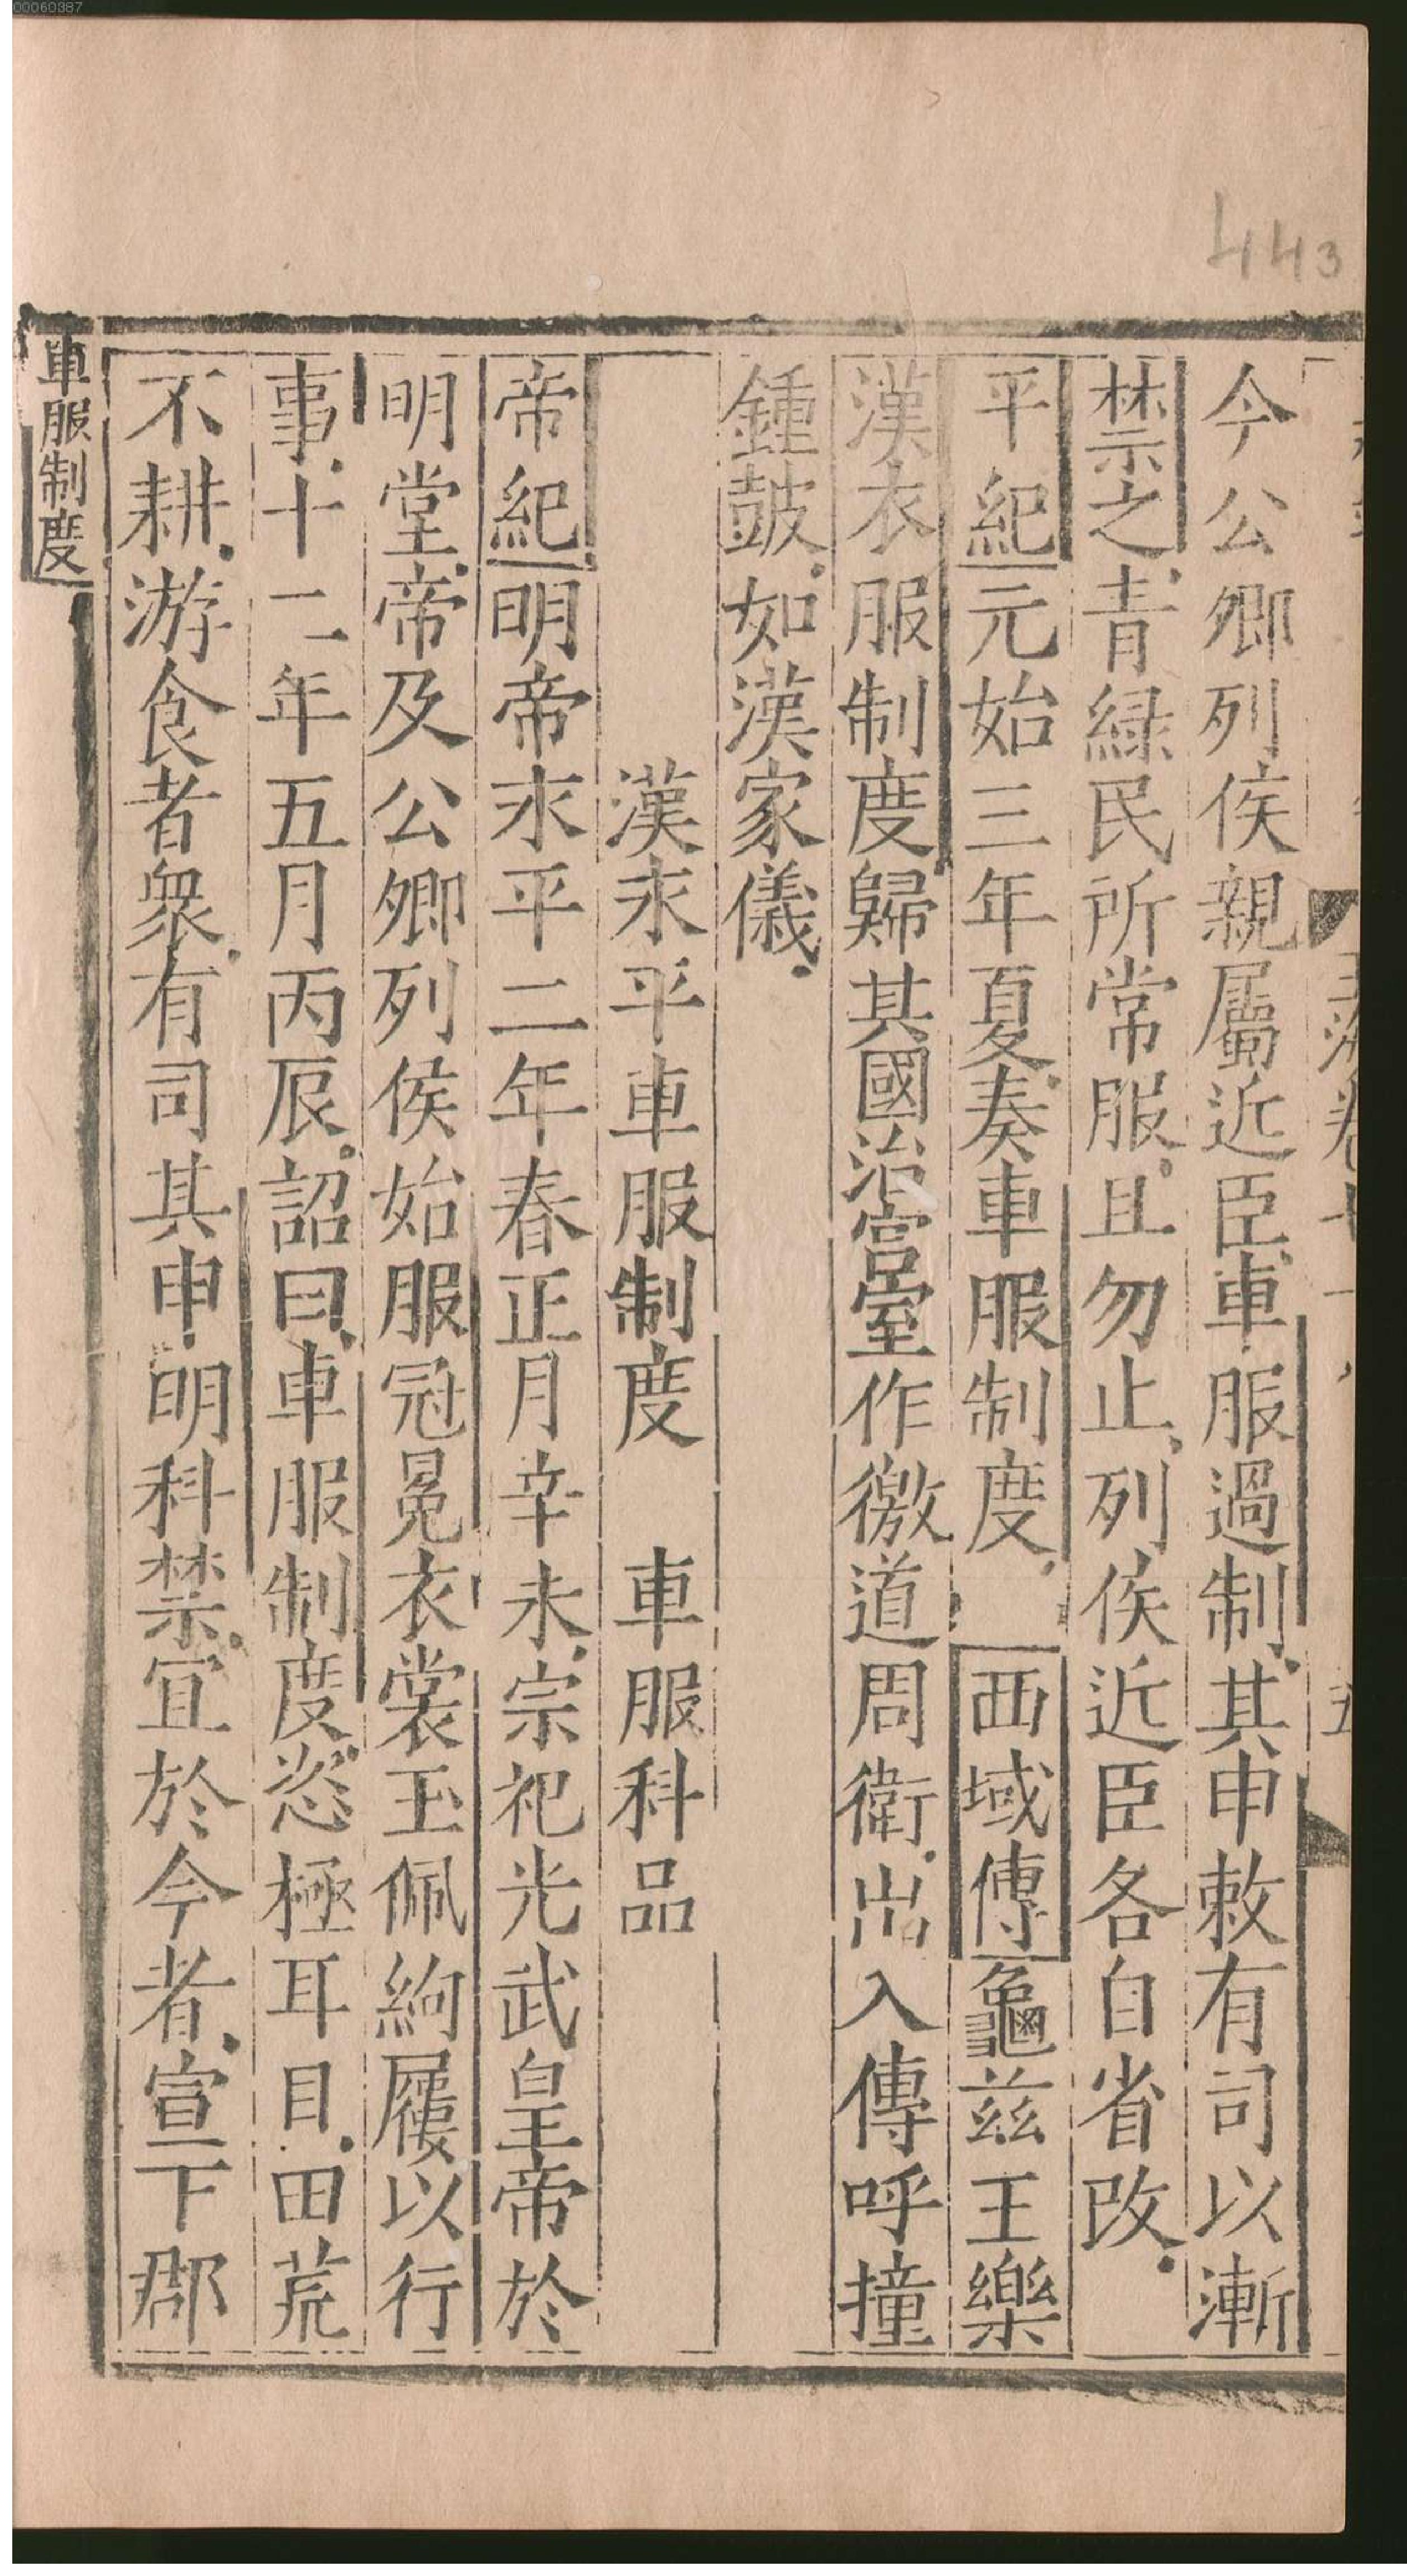 00060387
443
今公卿列侯親屬近臣車服過制其申敕有司以漸
禁之青綠民所常服且勿止列侯近臣各自省改
平紀元始三年夏奏車服制度 西域傳龜茲王樂
漢衣服制度歸其國治宮室作徼道周衛出入傳呼撞
鍾鼓如漢家儀
漢永平車服制度 車服科品
帝紀明帝永平二年春正月辛未宗祀光武皇帝於
明堂帝及公卿列侯始服冠冕衣裳玉佩絇屨以行
事十二年五月丙辰詔曰車服制度恣極耳目田荒
不耕游食者衆有司其申明科禁宜於今者宣下郡
車服制度